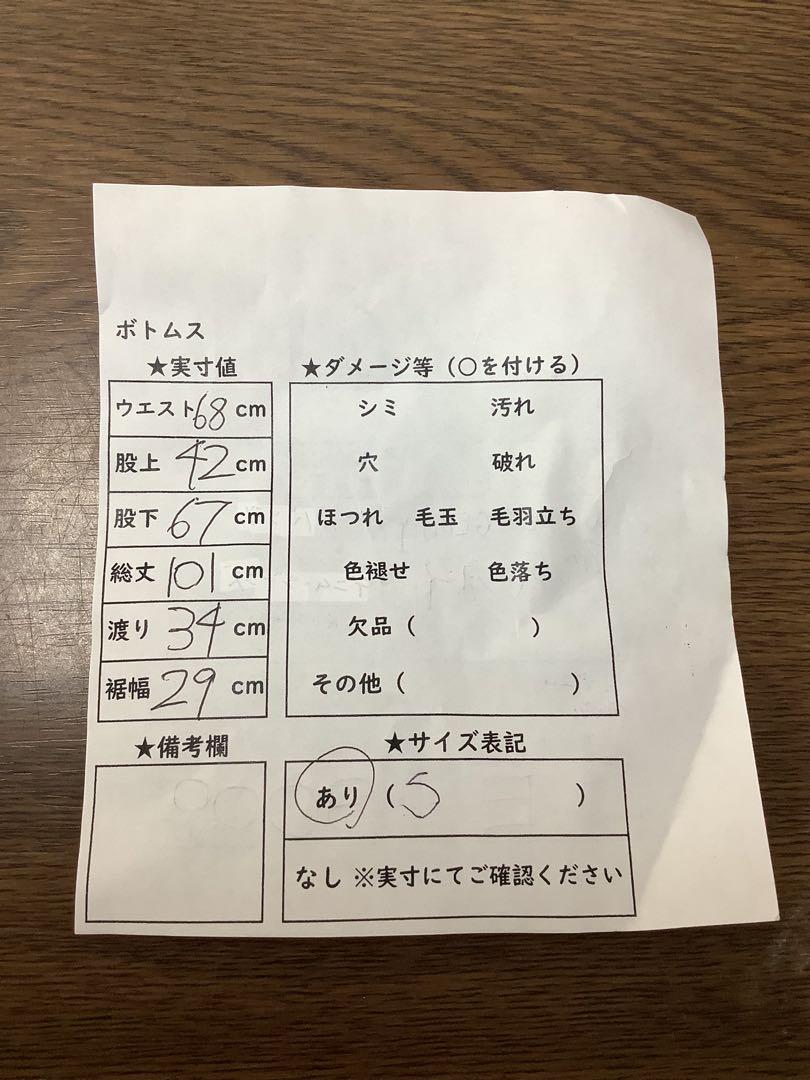 ボトムス
★実寸値
ウエスト68cm
股上 42cm
股下 67cm
総丈 101cm
渡り 34cm
裾幅 29cm
★ダメージ等（○を付ける）
シミ 汚れ
穴 破れ
ほつれ 毛玉 毛羽立ち
色褪せ 色落ち
欠品（ ）
その他（ ）
★備考欄
★サイズ表記
あり（S ）
なし ※実寸にてご確認ください